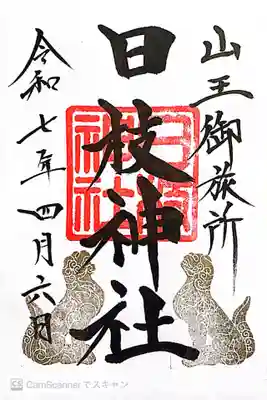 山王御旅所
日枝神社
令和七年四月六日
日枝神社
CS CamScanner でスキャン